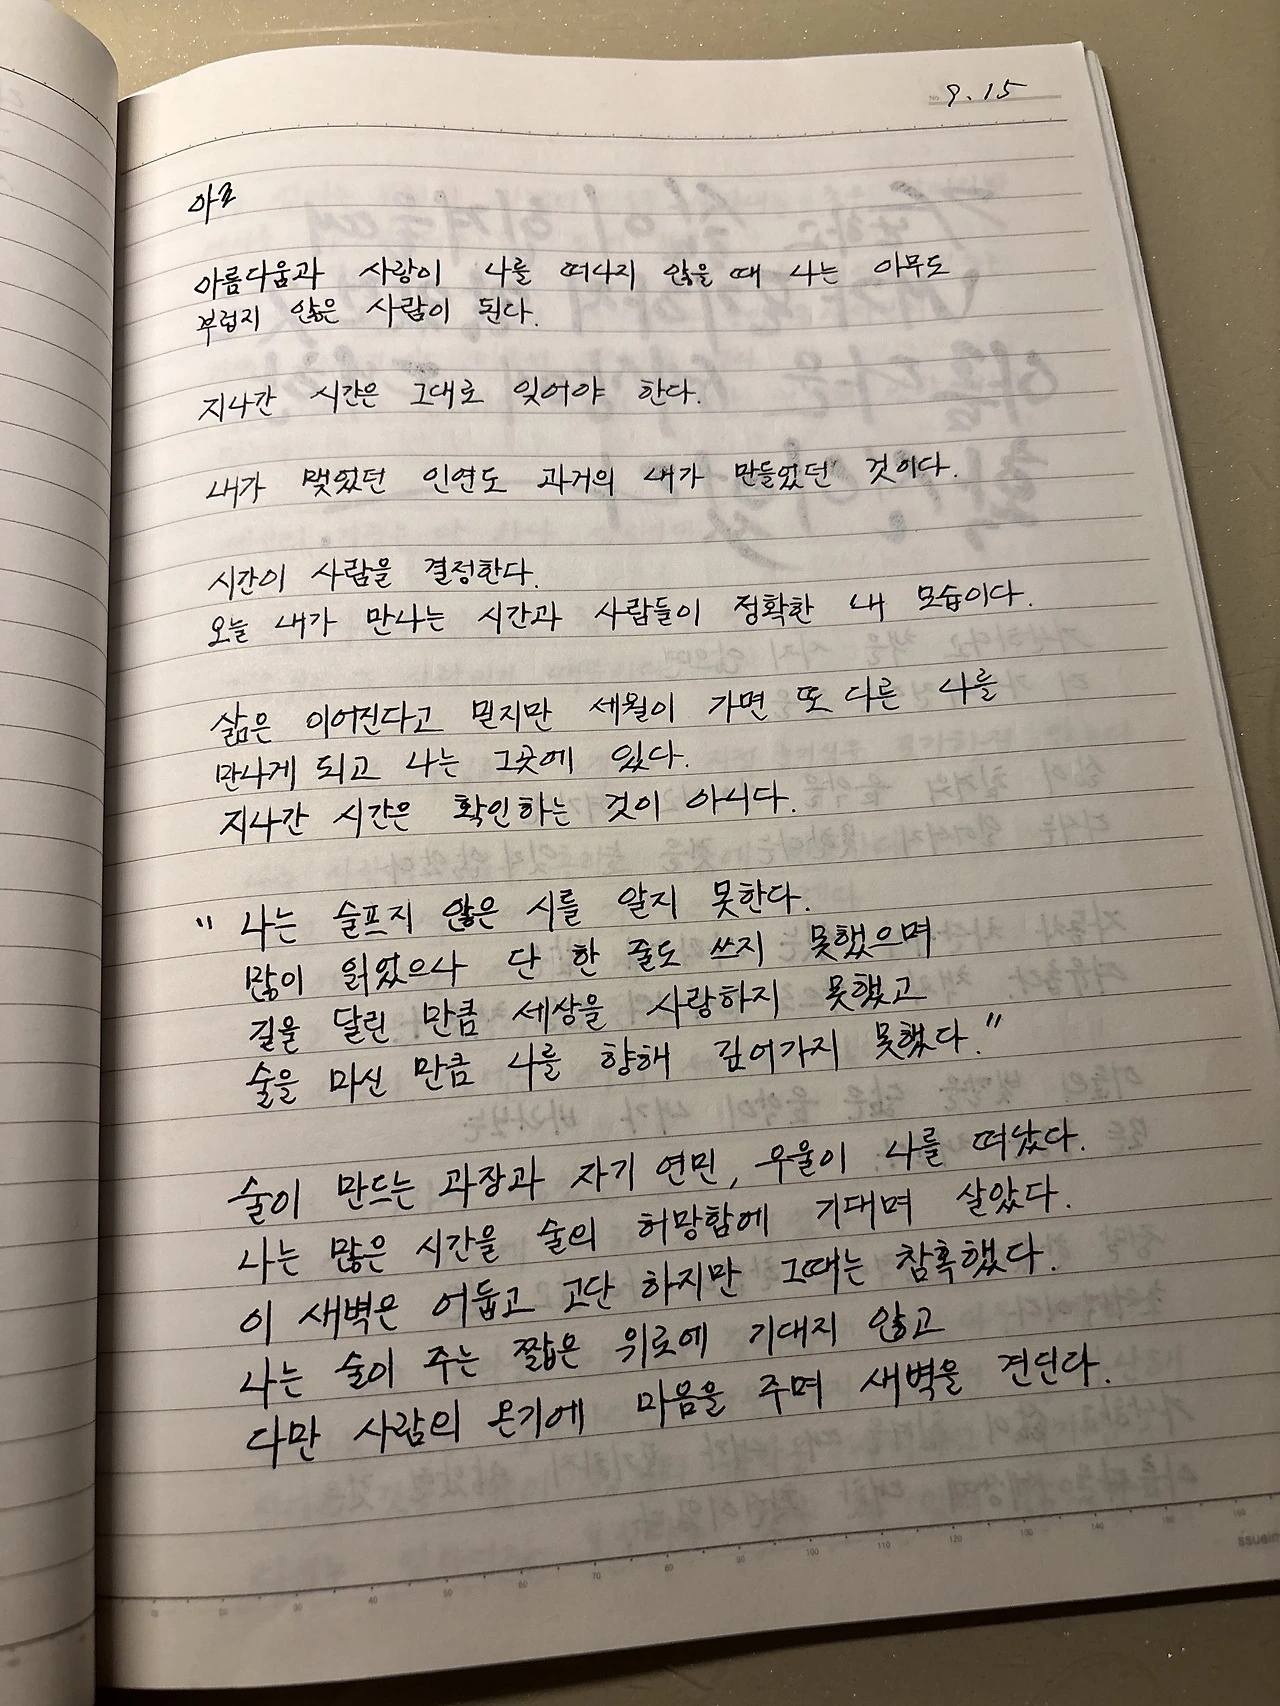 9.15
아프
아름다움과 사랑이 나를 떠나지 않을 때 나는 아무도
부럽지 않은 사람이 된다.
지나간 시간은 그대로 잊어야 한다.
내가 맺었던 인연도 과거의 내가 만들었던 것이다.
시간이 사람을 결정한다.
오늘 내가 만나는 시간과 사람들이 정확한 내 모습이다.
삶은 이어진다고 믿지만 세월이 가면 또 다른 나를
만나게 되고 나는 그곳에 있다.
지나간 시간은 확인하는 것이 아니다.
"나는 슬프지 않은 시를 알지 못한다.
많이 읽었으나 단 한 줄도 쓰지 못했으며
길을 달린 만큼 세상을 사랑하지 못했고
술을 마신 만큼 나를 향해 깊어가지 못했다."
술이 만드는 과장과 자기 연민, 우울이 나를 떠났다.
나는 많은 시간을 술의 허망함에 기대며 살았다.
이 새벽은 어둡고 고단 하지만 그때는 참혹했다.
나는 술이 주는 짧은 위로에 기대지 않고
다만 사람의 온기에 마음을 주며 새벽을 견딘다.